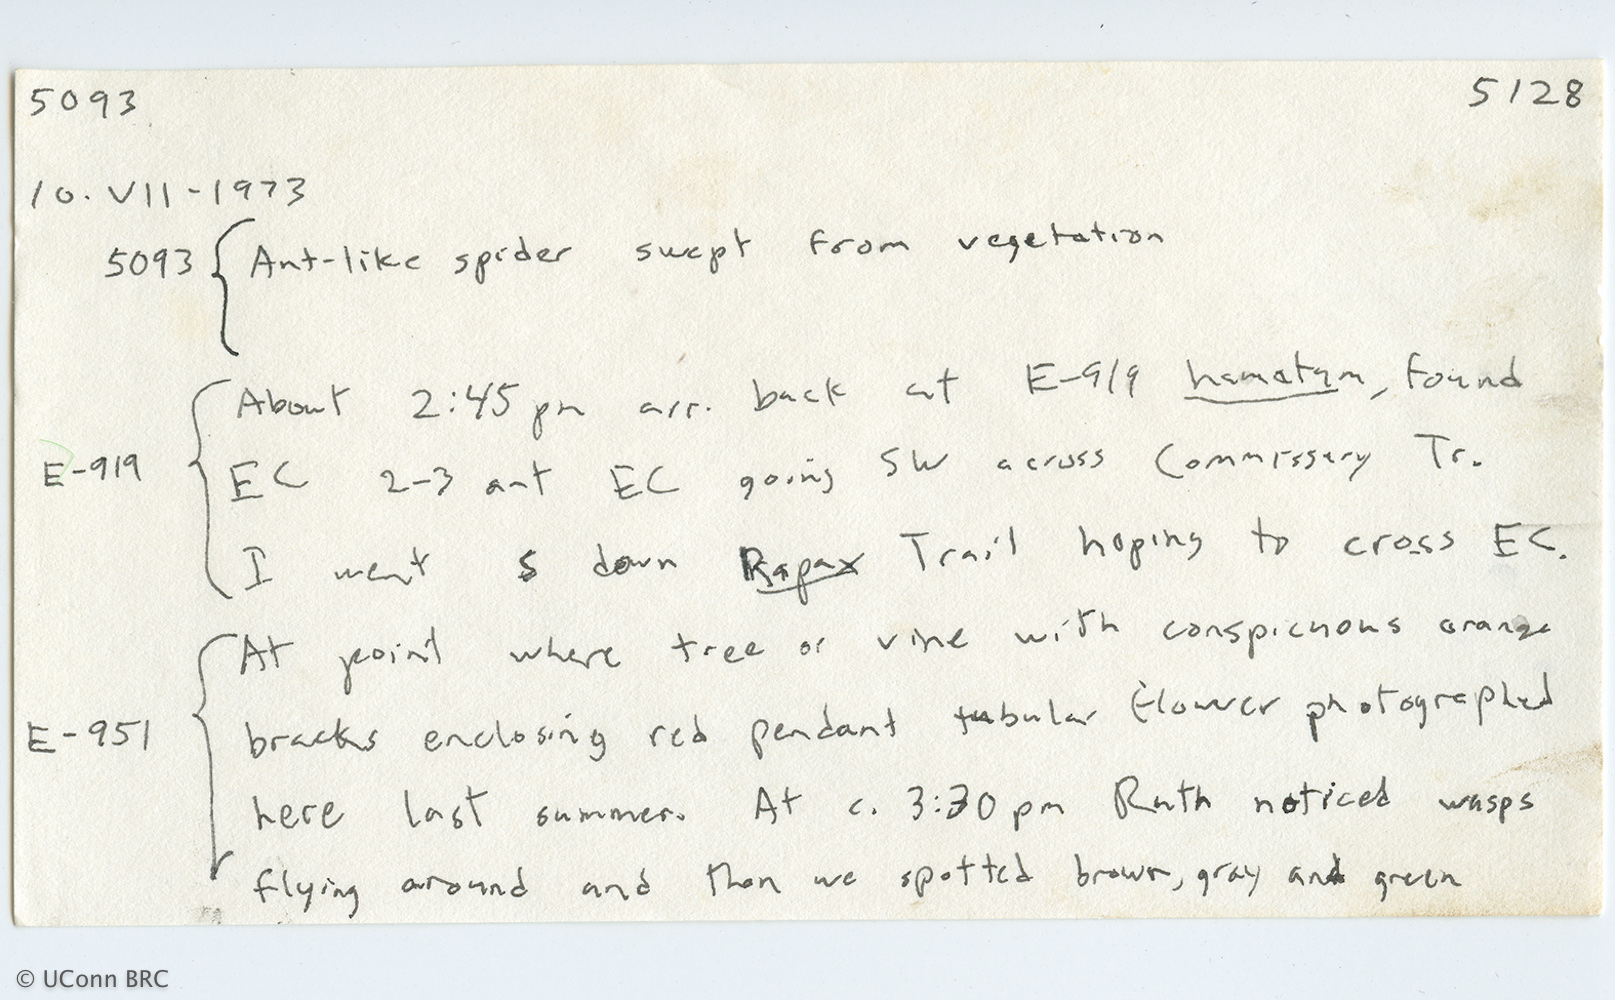 5093 5128
10. VII-1973
5093 { Ant-like spider swept from vegetation
About 2:45 pm arr. back at E-919 hamatum, found
E-919 { EC 2-3 ant EC going SW across Commissary Tr.
I went S down Rapax Trail hoping to cross EC.
At point where tree or vine with conspicuous orange
E-951 { bracks enclosing red pendant tubular flower photographed
here last summer. At c. 3:30 pm Ruth noticed wasps
flying around and then we spotted brown, gray and green
© UConn BRC